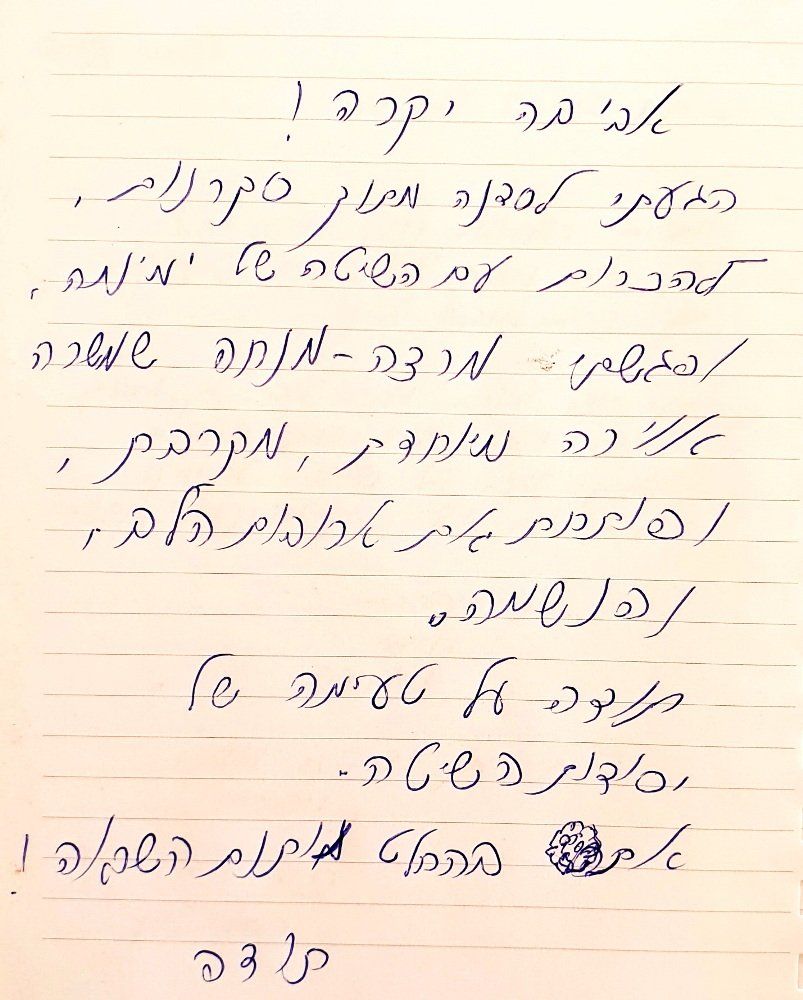 אביבה יקרה!
הגעתי לסדנה מתוך סקרנות,
להכרות עם השיטה של ימימה,
ופגשתי מרצה-מנחה שמשרה
אוירה מיוחדת, מקרבת,
ופותחת גם ארובות הלב,
והנשמה.
תודה על טעימה של
יסודות השיטה.
את בהחלט נותנת השראה!
תודה